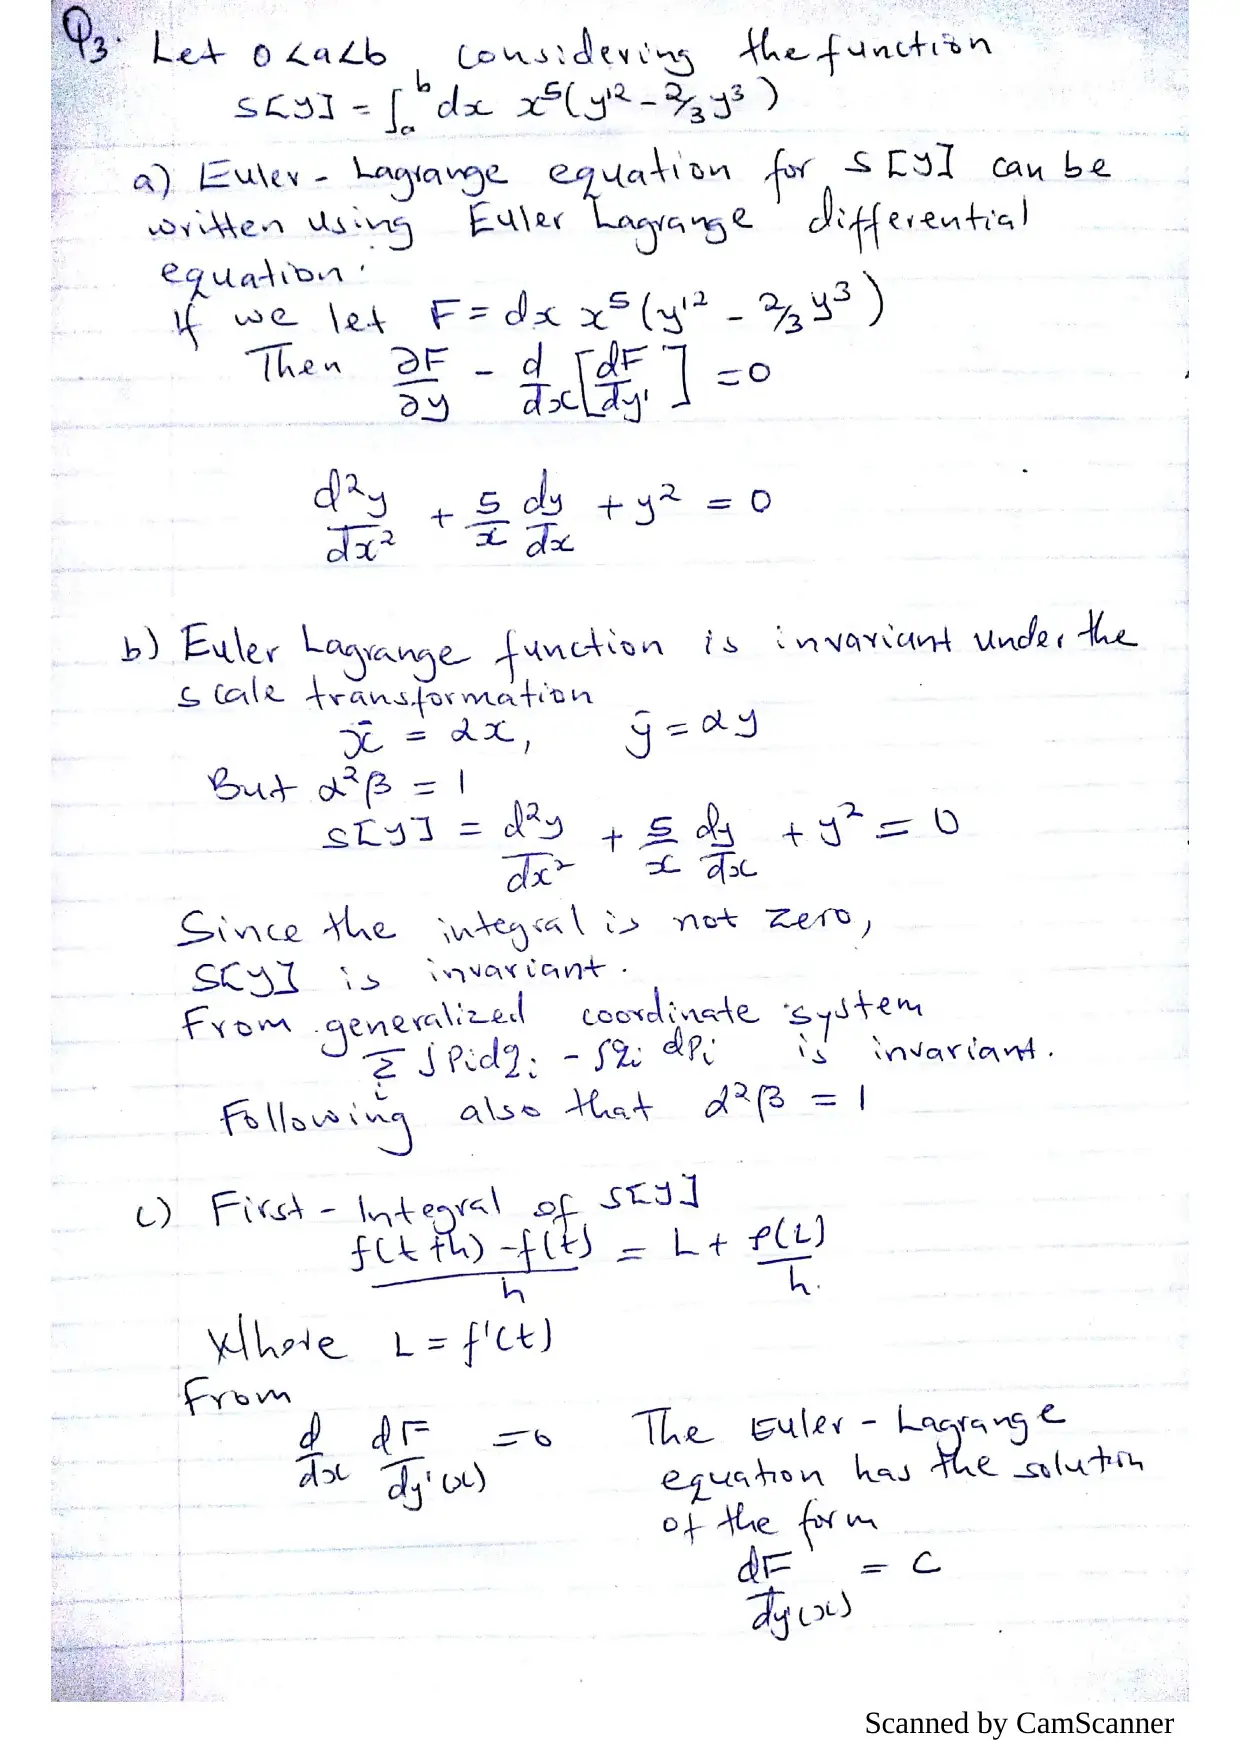 Q3. Let 0<a<b, considering the function
S[y] = ∫ₐᵇ dx x⁵(y'² - 2/3 y³)
a) Euler - Lagrange equation for S[y] can be
written using Euler Lagrange differential
equation.
If we let F = dx x⁵(y'² - 2/3 y³)
Then ∂F/∂y - d/dx [dF/dy'] = 0
d²y/dx² + 5/x dy/dx + y² = 0
b) Euler Lagrange function is invariant under the
scale transformation
x̄ = αx, ȳ = αy
But α²β = 1
S[y] = d²y/dx² + 5/x dy/dx + y² = 0
Since the integral is not zero,
S[y] is invariant.
From generalized coordinate system
Σᵢ ∫Pidqi - ∫qi dPi is invariant.
Following also that α²β = 1
c) First - Integral of S[y]
f(t+h) - f(t)/h = L + ρ(L)/h.
Where L = f'(t)
From
d/dx dF/dy'(x) = 0
The Euler - Lagrange
equation has the solution
of the form
dF/dy'(x) = C
Scanned by CamScanner